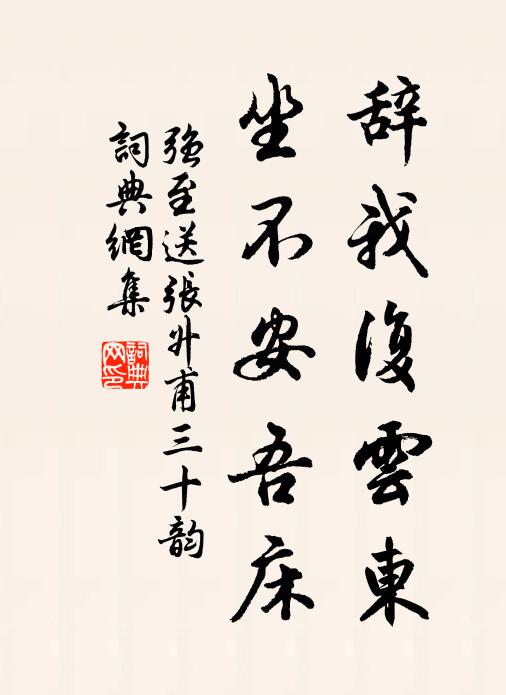 辞我復雲東
坐不安吾床
強至送張廾甫三十韵
詞典網集
詞典
网印